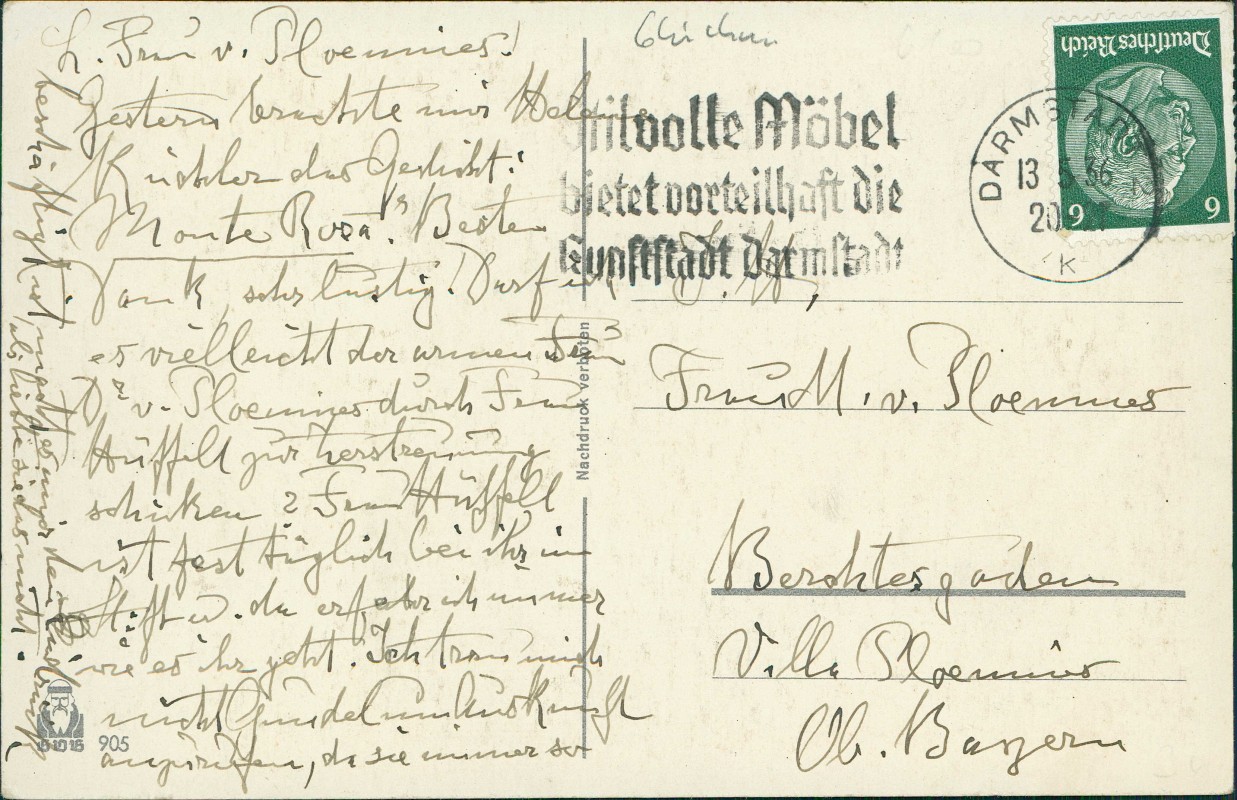 L. Frau v. Ploennies!
Gestern brachte mir Helene
Küchler das Gedicht:
"Monte Rosa". Besten
Dank, sehr lustig! Darf ich
es vielleicht der armen Frau
Dr v. Ploennies durch Frau
Hüffell zur Zerstreuung
schicken? Frau Hüffell
ist fast täglich bei ihr im
Stift u. da erfahr ich immer
wie es ihr geht. Ich trau mich
nicht Gundel um Auskunft
anzurufen, da sie immer so
beschäftigt ist
als liebe sie das nicht.
905
Nachdruck verboten
Stilvolle Möbel
bietet vorteilhaft die
Kunststadt Darmstadt
DARMSTADT
13 5 36
20
K
Deutsches Reich
6 6
Frau M. v. Ploennies
Berchtesgaden
Villa Ploennies
Ob. Bayern